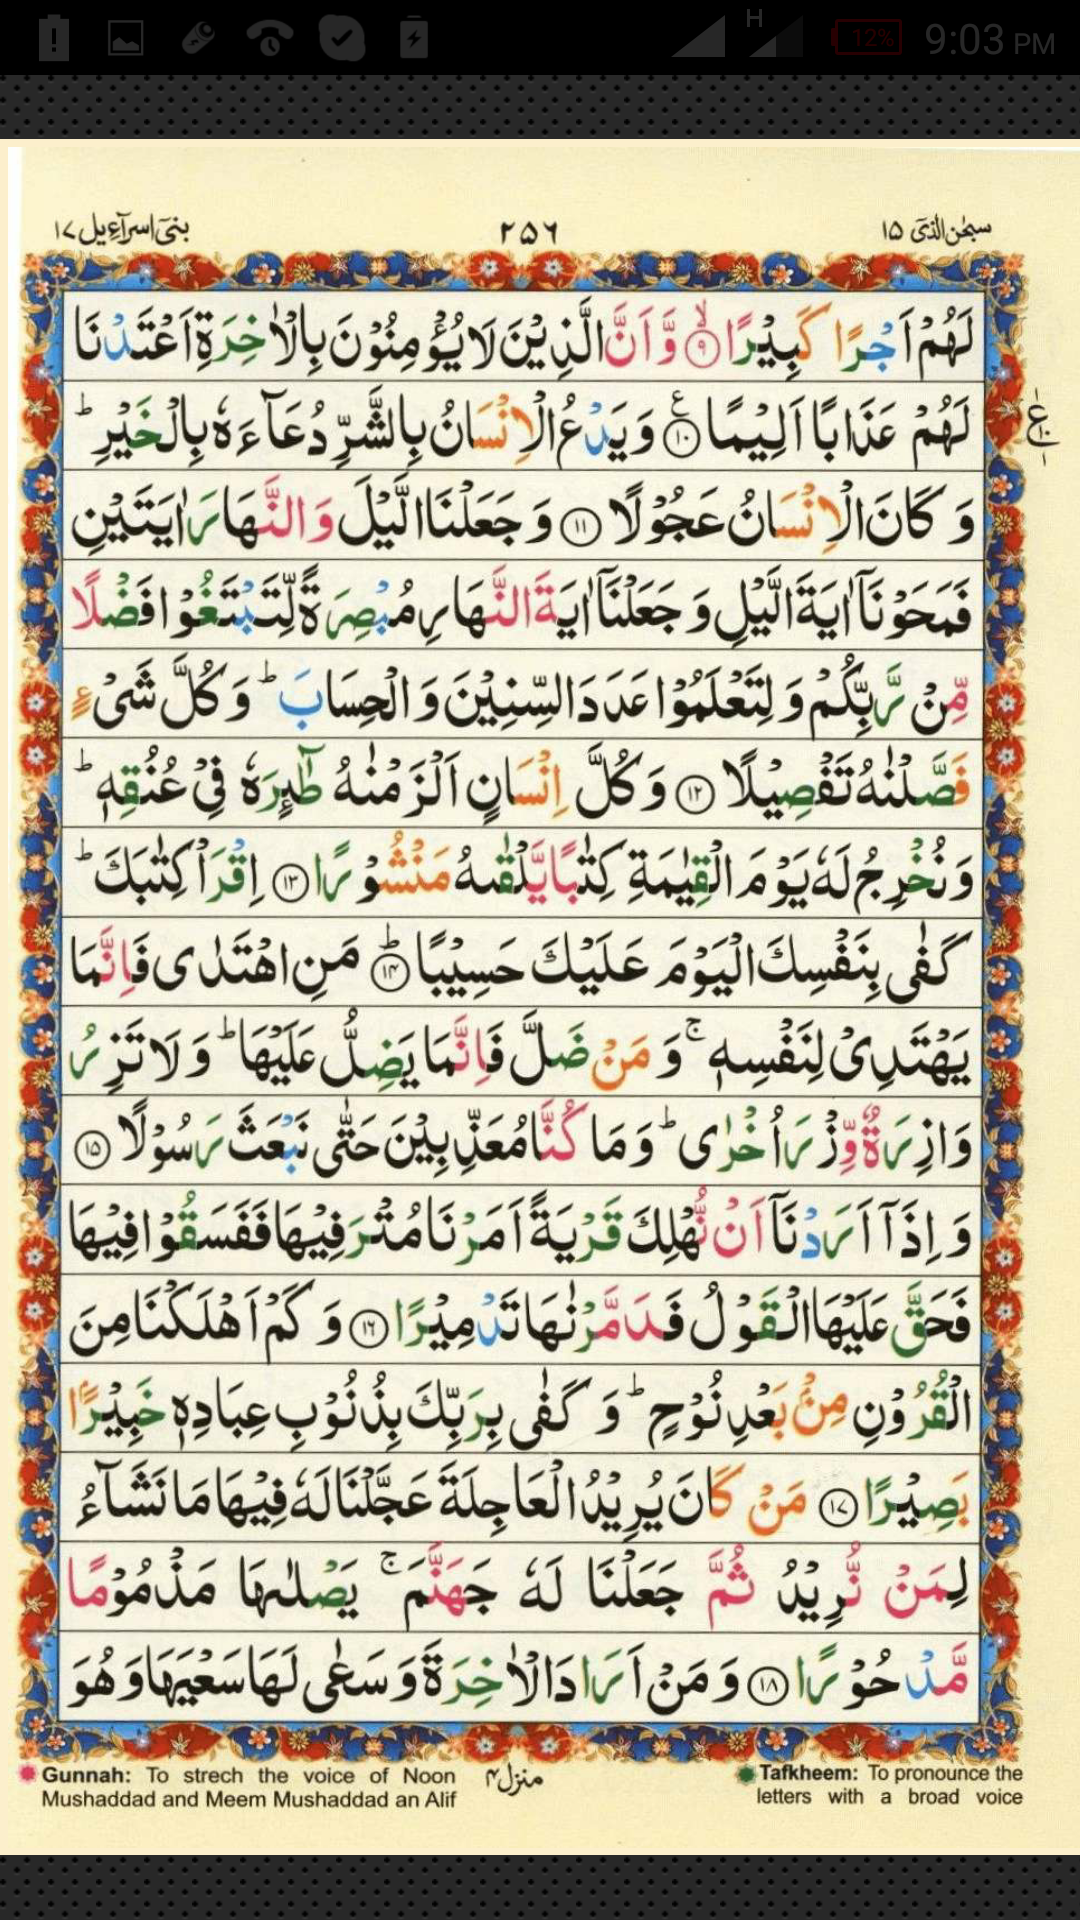 H 12% 9:03 PM
سبحٰن الذی ١٥ ٢٥٦ بنیٓ اسرآءیل ١٧
لَهُمْ اَجْرًا كَبِیْرًا ۙ۹ وَّ اَنَّ الَّذِیْنَ لَا یُؤْمِنُوْنَ بِالْاٰخِرَةِ اَعْتَدْنَا
لَهُمْ عَذَابًا اَلِیْمًا ۧ۱۰ وَ یَدْعُ الْاِنْسَانُ بِالشَّرِّ دُعَآءَهٗ بِالْخَیْرِ ؕ
وَ كَانَ الْاِنْسَانُ عَجُوْلًا ۱۱ وَ جَعَلْنَا الَّیْلَ وَ النَّهَارَ اٰیَتَیْنِ
فَمَحَوْنَاۤ اٰیَةَ الَّیْلِ وَ جَعَلْنَاۤ اٰیَةَ النَّهَارِ مُبْصِرَةً لِّتَبْتَغُوْا فَضْلًا
مِّنْ رَّبِّكُمْ وَ لِتَعْلَمُوْا عَدَدَ السِّنِیْنَ وَ الْحِسَابَ ؕ وَ كُلَّ شَیْءٍ
فَصَّلْنٰهُ تَفْصِیْلًا ۱۲ وَ كُلَّ اِنْسَانٍ اَلْزَمْنٰهُ طٰٓئِرَهٗ فِیْ عُنُقِهٖ ؕ
وَ نُخْرِجُ لَهٗ یَوْمَ الْقِیٰمَةِ كِتٰبًا یَّلْقٰىهُ مَنْشُوْرًا ۱۳ اِقْرَاْ كِتٰبَكَ ؕ
كَفٰی بِنَفْسِكَ الْیَوْمَ عَلَیْكَ حَسِیْبًا ؕ۱۴ مَنِ اهْتَدٰی فَاِنَّمَا
یَهْتَدِیْ لِنَفْسِهٖ ۚ وَ مَنْ ضَلَّ فَاِنَّمَا یَضِلُّ عَلَیْهَا ؕ وَ لَا تَزِرُ
وَازِرَةٌ وِّزْرَ اُخْرٰی ؕ وَ مَا كُنَّا مُعَذِّبِیْنَ حَتّٰی نَبْعَثَ رَسُوْلًا ۱۵
وَ اِذَاۤ اَرَدْنَاۤ اَنْ نُّهْلِكَ قَرْیَةً اَمَرْنَا مُتْرَفِیْهَا فَفَسَقُوْا فِیْهَا
فَحَقَّ عَلَیْهَا الْقَوْلُ فَدَمَّرْنٰهَا تَدْمِیْرًا ۱۶ وَ كَمْ اَهْلَكْنَا مِنَ
الْقُرُوْنِ مِنْۢ بَعْدِ نُوْحٍ ؕ وَ كَفٰی بِرَبِّكَ بِذُنُوْبِ عِبَادِهٖ خَبِیْرًۢا
بَصِیْرًا ۱۷ مَنْ كَانَ یُرِیْدُ الْعَاجِلَةَ عَجَّلْنَا لَهٗ فِیْهَا مَا نَشَآءُ
لِمَنْ نُّرِیْدُ ثُمَّ جَعَلْنَا لَهٗ جَهَنَّمَ ۚ یَصْلٰىهَا مَذْمُوْمًا
مَّدْحُوْرًا ۱۸ وَ مَنْ اَرَادَ الْاٰخِرَةَ وَ سَعٰی لَهَا سَعْیَهَا وَ هُوَ
Gunnah: To strech the voice of Noon
Mushaddad and Meem Mushaddad an Alif
منزل ۴
Tafkheem: To pronounce the
letters with a broad voice